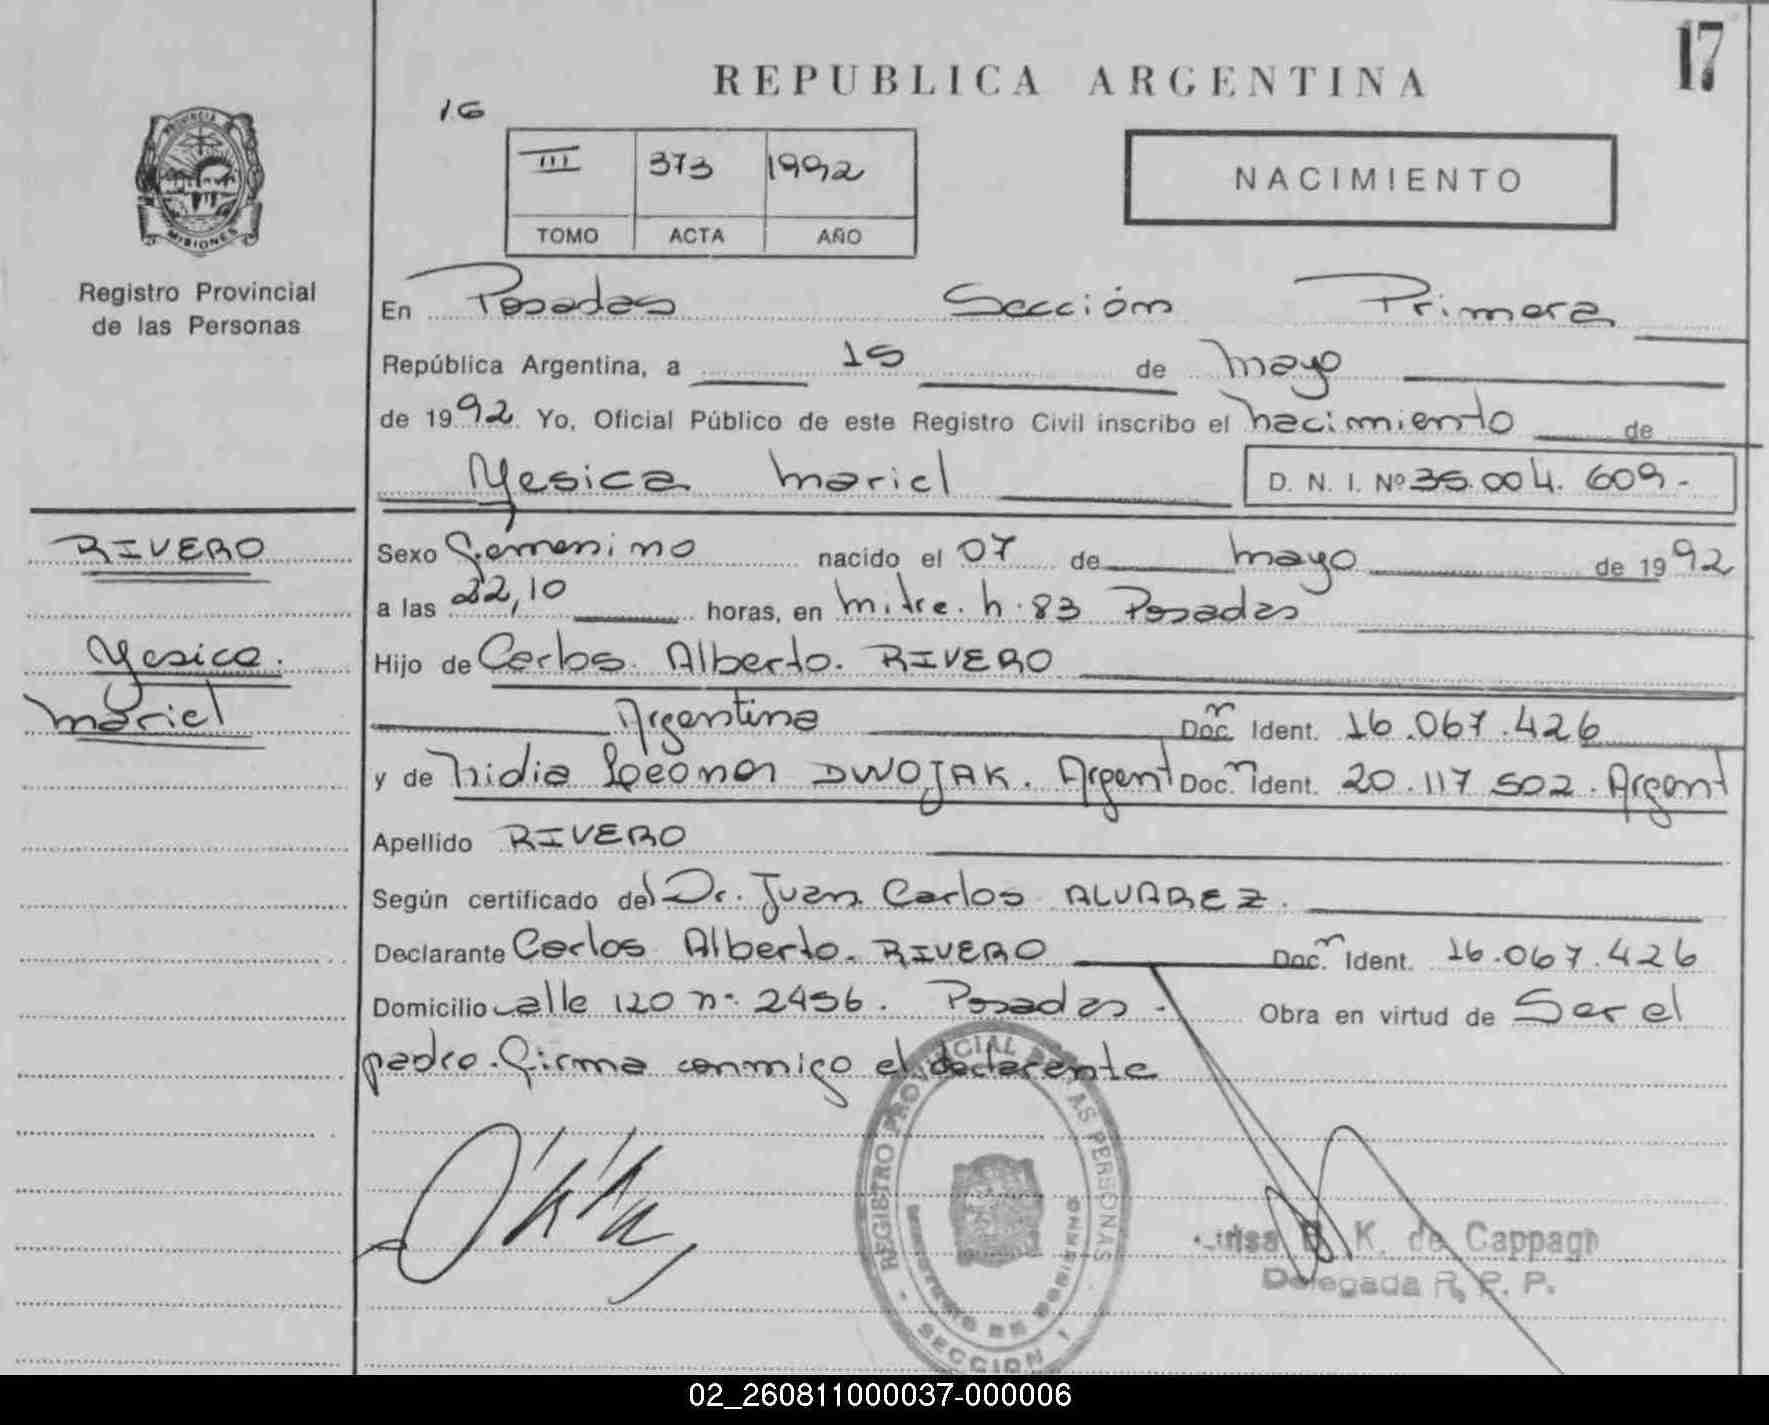 17
REPUBLICA ARGENTINA
16
III 373 1992
TOMO ACTA AÑO
NACIMIENTO
PROVINCIA
MISIONES
Registro Provincial
de las Personas
En Posadas Sección Primera
República Argentina, a 15 de mayo
de 1992. Yo, Oficial Público de este Registro Civil inscribo el nacimiento de
Yesica Mariel D. N. I. Nº 35.004.609.-
RIVERO
Yesica.
Mariel
Sexo femenino nacido el 07 de mayo de 1992
a las 22,10 horas, en Mitre. h. 83 Posadas
Hijo de Carlos Alberto. RIVERO
Argentina Doc. Ident. 16.067.426
y de Nidia Leonor DWOJAK. Argent Doc. Ident. 20.117.502. Argent
Apellido RIVERO
Según certificado del Dr. Juan Carlos ALVAREZ.
Declarante Carlos Alberto. RIVERO Doc. Ident. 16.067.426
Domicilio calle 120 nº 2456. Posadas.- Obra en virtud de Ser el
padre. firma conmigo el declarante
REGISTRO PROVINCIAL DE LAS PERSONAS
MINISTERIO DE GOBIERNO
SECCION 1
K. de Cappag
Delegada R. P. P.
02_260811000037-000006